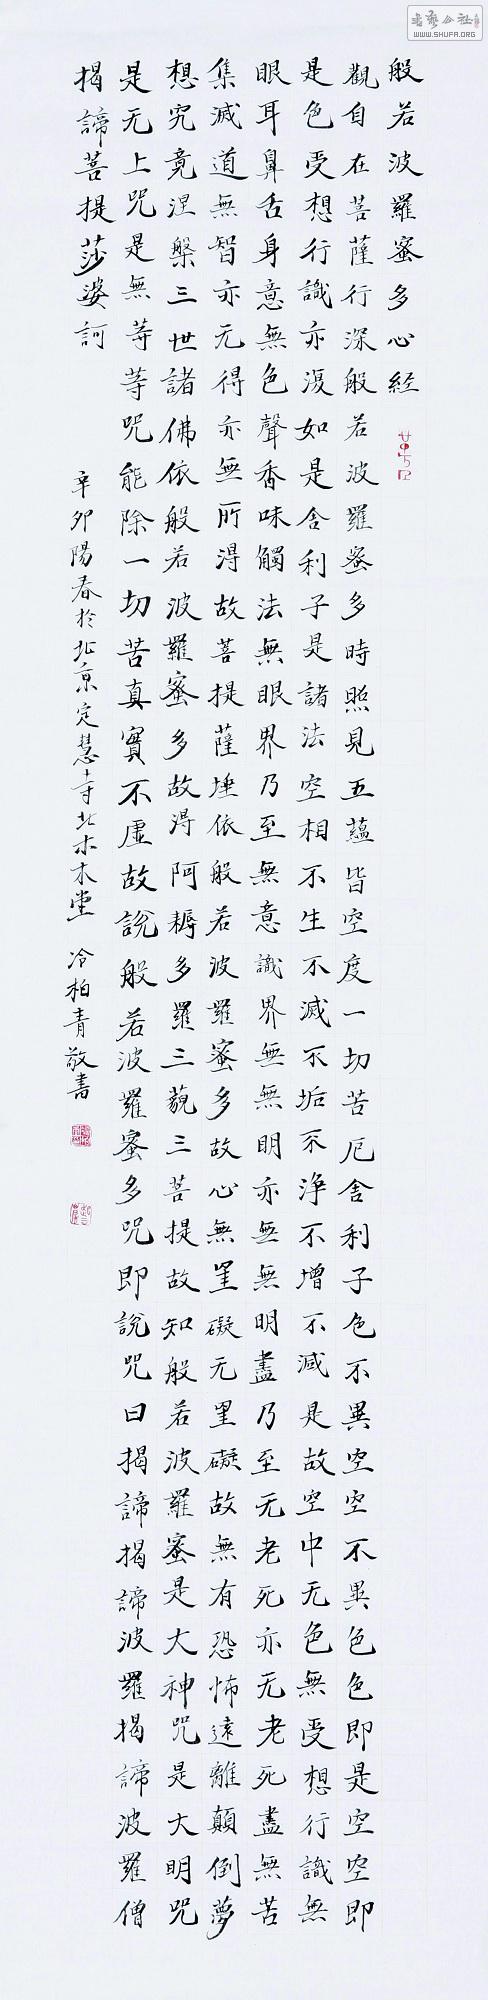 书艺公社
WWW.SHUFA.ORG
般若波羅蜜多心経
觀自在菩薩行深般若波羅蜜多時照見五蘊皆空度一切苦厄舍利子色不異空空不異色色即是空空即
是色受想行識亦復如是舍利子是諸法空相不生不滅不垢不淨不增不減是故空中无色無受想行識無
眼耳鼻舌身意無色聲香味觸法無眼界乃至無意識界無無明亦無無明盡乃至无老死亦无老死盡無苦
集滅道無智亦无得亦無所得故菩提薩埵依般若波羅蜜多故心無罣礙无罣礙故無有恐怖遠離顛倒夢
想究竟涅槃三世諸佛依般若波羅蜜多故得阿耨多羅三藐三菩提故知般若波羅蜜是大神咒是大明咒
是无上咒是無等等咒能除一切苦真實不虛故說般若波羅蜜多咒即說咒曰揭諦揭諦波羅揭諦波羅僧
揭諦菩提莎婆訶
辛卯陽春於北京定慧寺北木木堂 冷柏青敬書